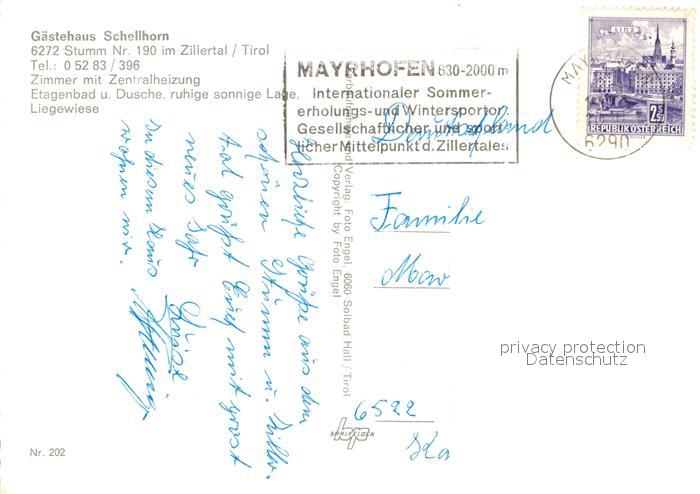 Gästehaus Schellhorn
6272 Stumm Nr. 190 im Zillertal / Tirol
Tel.: 0 52 83 / 396
Zimmer mit Zentralheizung
Etagenbad u. Dusche, ruhige sonnige Lage,
Liegewiese
MAYRHOFEN 630-2000 m
Internationaler Sommer-
erholungs- und Wintersportort
Gesellschaftlicher und sport-
licher Mittelpunkt d. Zillertales
LINZ
2.50 S
REPUBLIK ÖSTERREICH
6290
Deutschland
Familie
6522
Herzliche Grüße aus dem
schönen Stumm u. Ziller-
tal grüßt Euch mit
neues
In diesem Haus
wohnen wir.
und Verlag: Foto Engel, 6060 Solbad Hall / Tirol
Copyright by Foto Engel
privacy protection
Datenschutz
SAALFELDEN
Nr. 202